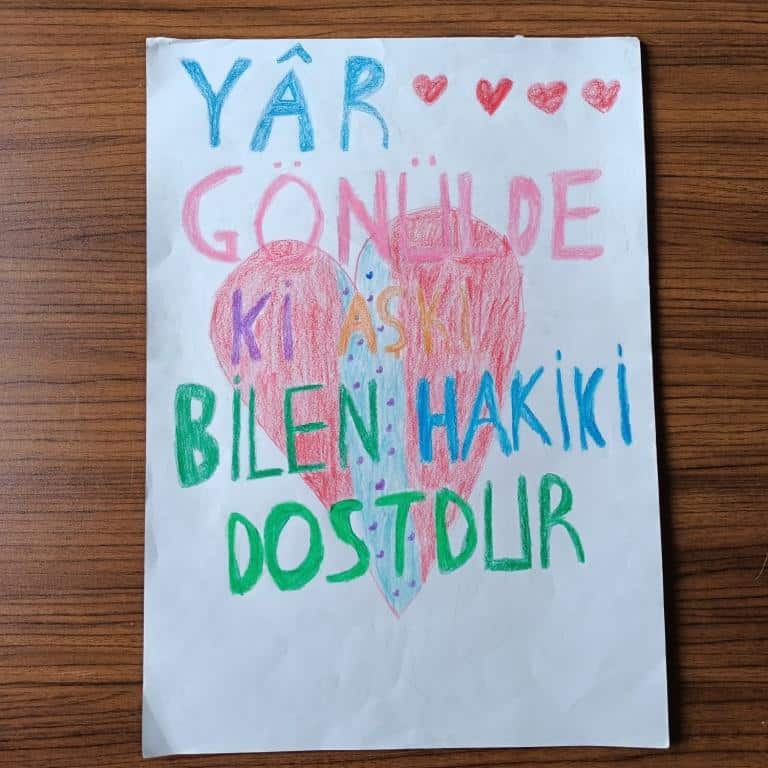 YÂR
GÖNÜLDE
Kİ AŞKI
BİLEN HAKİKİ
DOSTDUR